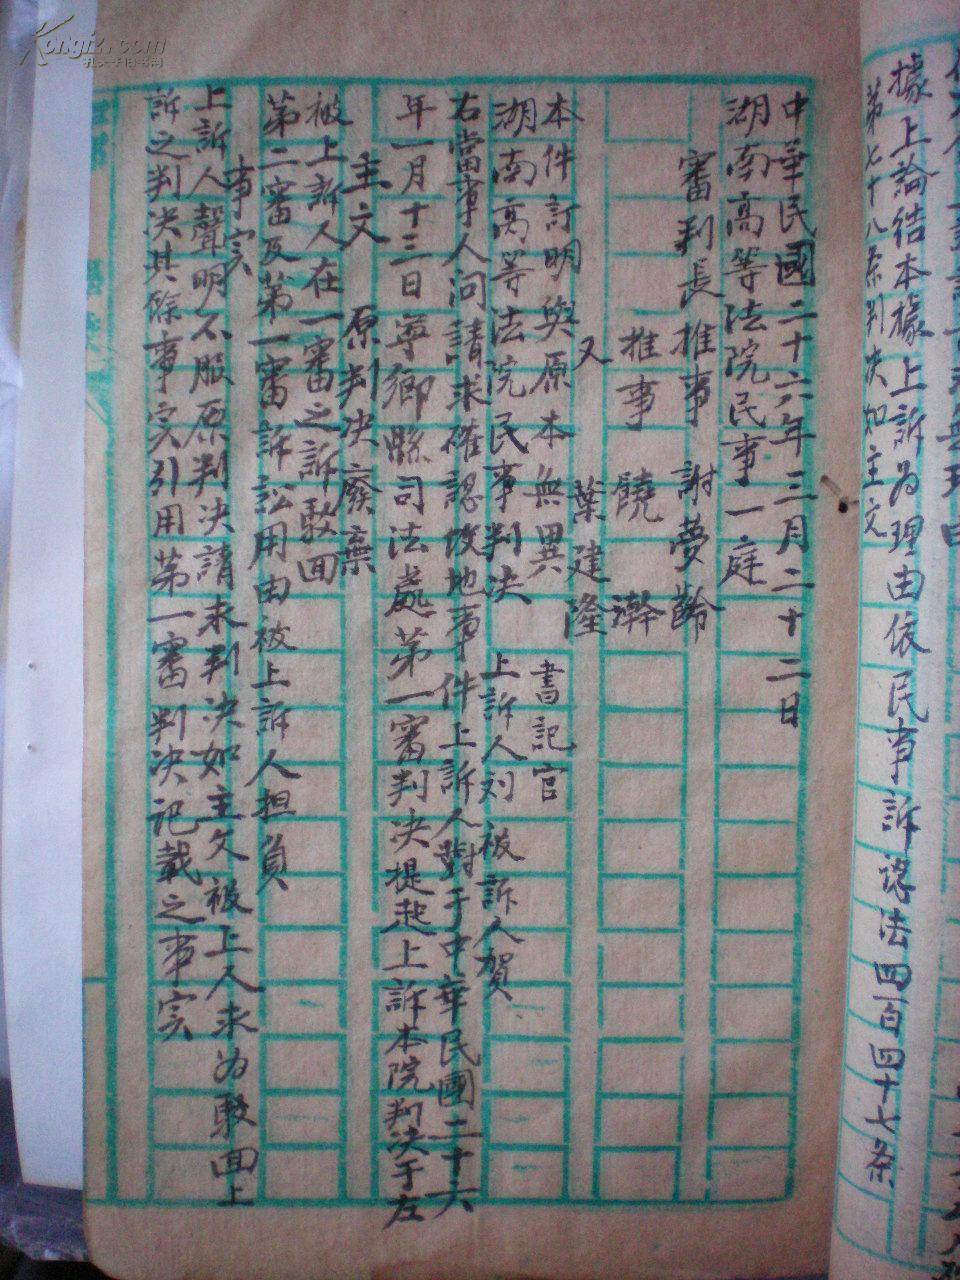 據上論結本據上訴为理由依民事訴讼法四百四十七条
第七十八条判决如主文
中華民國二十六年三月二十二日
湖南高等法院民事一庭
審判長推事 謝夢齡
推事 饒 瀚
又 葉建隆
本件訂明與原本無異 書記官
湖南高等法院民事判决 上訴人刘 被訴人賀
右當事人间請求確認坟地事件上訴人對于中華民國二十六
年一月十三日寧鄉縣司法處第一審判决提起上訴本院判决于左
主文 原判决廢棄
被上訴人在一審之訴駁回
第二審及第一審訴訟用由被上訴人担負
事实
上訴人聲明不服原判决請求判决如主文被上人求为駁回上
訴之判决其餘事实引用第一審判决记載之事实
Kongfz.com
孔夫子旧书网